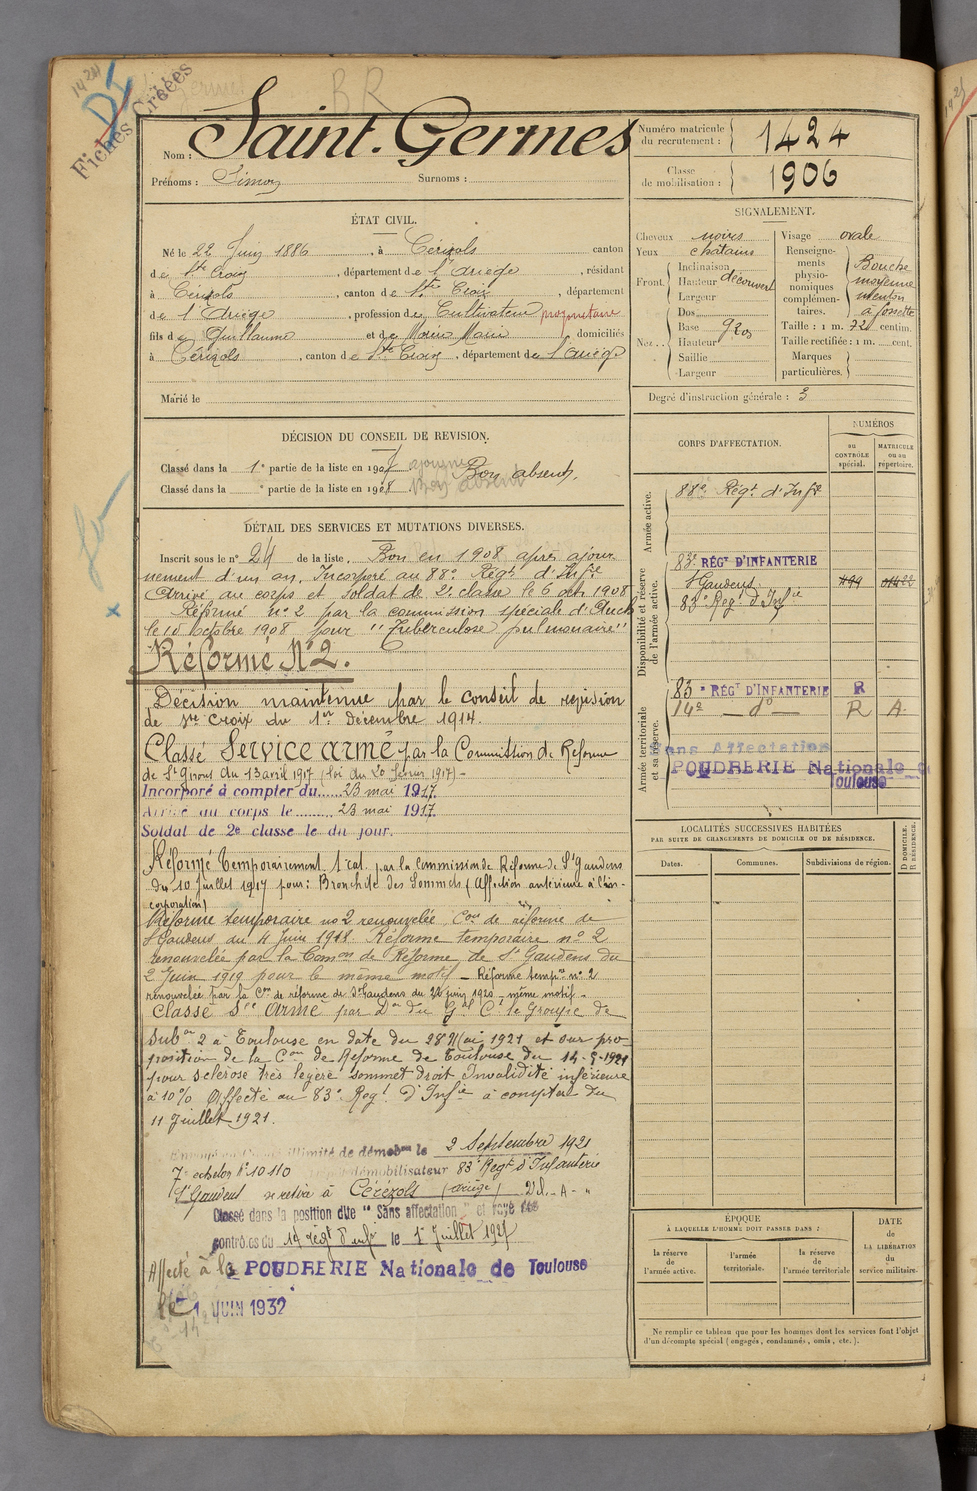 1424
D5
Fiches Créées
BR
Nom : Saint-Germes
Prénoms : Simon Surnoms :
Numéro matricule du recrutement : 1424
Classe de mobilisation : 1906
ÉTAT CIVIL.
Né le 22 Juin 1886, à Cérizols canton
de Ste Croix, département de l'Ariège, résidant
à Cérizols, canton de Ste Croix, département
de l'Ariège, profession de Cultivateur propriétaire
fils de Guillaume et de Marie domiciliés
à Cérizols, canton de Ste Croix, département de l'Ariège
Marié le
SIGNALEMENT.
Cheveux noirs
Yeux chatains
Front. Inclinaison
Hauteur découvert
Largeur
Nez.. Dos
Base gros
Hauteur
Saillie
Largeur
Visage ovale
Renseignements physionomiques complémentaires. Bouche moyenne menton à fossette
Taille : 1 m. 72 centim.
Taille rectifiée : 1 m. cent.
Marques particulières.
Degré d'instruction générale : 3
DÉCISION DU CONSEIL DE REVISION.
Classé dans la 1e partie de la liste en 1907 ajourné Bon absent.
Classé dans la e partie de la liste en 1908 Bon absent
DÉTAIL DES SERVICES ET MUTATIONS DIVERSES.
Inscrit sous le n° 24 de la liste. Bon en 1908 après ajour
nement d'un an. Incorporé au 88e Régt d'Infie
Arrivé au corps et soldat de 2e classe le 6 octb 1908
Réformé n° 2 par la commission spéciale d'Auch
le 10 Octobre 1908 pour "Tuberculose pulmonaire"
Réformé N°2.
Décision maintenue par le conseil de revision
de Ste Croix du 1er décembre 1914.
Classé Service armé par la Commission de Réforme
de St Girons du 13 avril 1917 (loi du 20 février 1917) -
Incorporé à compter du 23 mai 1917.
Arrivé au corps le 23 mai 1917.
Soldat de 2e classe le du jour.
Réformé temporairement 1 cat. par la Commission de Réforme de St Gaudens
du 10 Juillet 1917 pour : Bronchite des Sommets (Affection antérieure à l'in-
corporation)
Réforme temporaire no 2 renouvelée Con de réforme de
St Gaudens du 4 Juin 1918. Réforme temporaire n° 2
renouvelée par la Comon de Réforme de St Gaudens du
2 Juin 1919 pour le même motif - Réforme tempre n° 2
renouvelée par la Con de réforme de St Gaudens du 22 juin 1920 - même motif -
Classé Sce Armé par Don du Gal Ct le Groupe de
Subon 2 à Toulouse en date du 28 Mai 1921 et sur pro-
position de la Con de Réforme de Toulouse du 14-5-1921
pour sclérose très légère sommet droit Invalidité inférieure
à 10% Affecté au 83e Regt d'Infie à compter du
11 Juillet 1921.
illimité de démobon le 2 Septembre 1921
7e échelon N° 10110 démobilisateur 83e Regt d'Infanterie
St Gaudens se retire à Cérizols (Ariège)
Classé dans la position dite "Sans affectation" et rayé des
contrôles du 14 régt d'infie le 1er Juillet 1927
Affecté à la POUDRERIE Nationale de Toulouse
le 1 JUIN 1932
CORPS D'AFFECTATION.
NUMÉROS
au CONTRÔLE spécial.
MATRICULE ou au répertoire.
Armée active.
88e Régt d'Infie
Disponibilité et réserve de l'armée active.
83e RÉGT D'INFANTERIE
St Gaudens.
83e Regt d'Infie
Armée territoriale et sa réserve.
83e RÉGT D'INFANTERIE R
14e — do — R A
Sans Affectation
POUDRERIE Nationale de
Toulouse
LOCALITÉS SUCCESSIVES HABITÉES
PAR SUITE DE CHANGEMENTS DE DOMICILE OU DE RÉSIDENCE.
D DOMICILE.
R RÉSIDENCE.
Dates.
Communes.
Subdivisions de région.
ÉPOQUE
À LAQUELLE L'HOMME DOIT PASSER DANS :
la réserve de l'armée active.
l'armée territoriale.
la réserve de l'armée territoriale
DATE de LA LIBÉRATION du service militaire.
Ne remplir ce tableau que pour les hommes dont les services font l'objet
d'un décompte spécial (engagés, condamnés, omis, etc.).